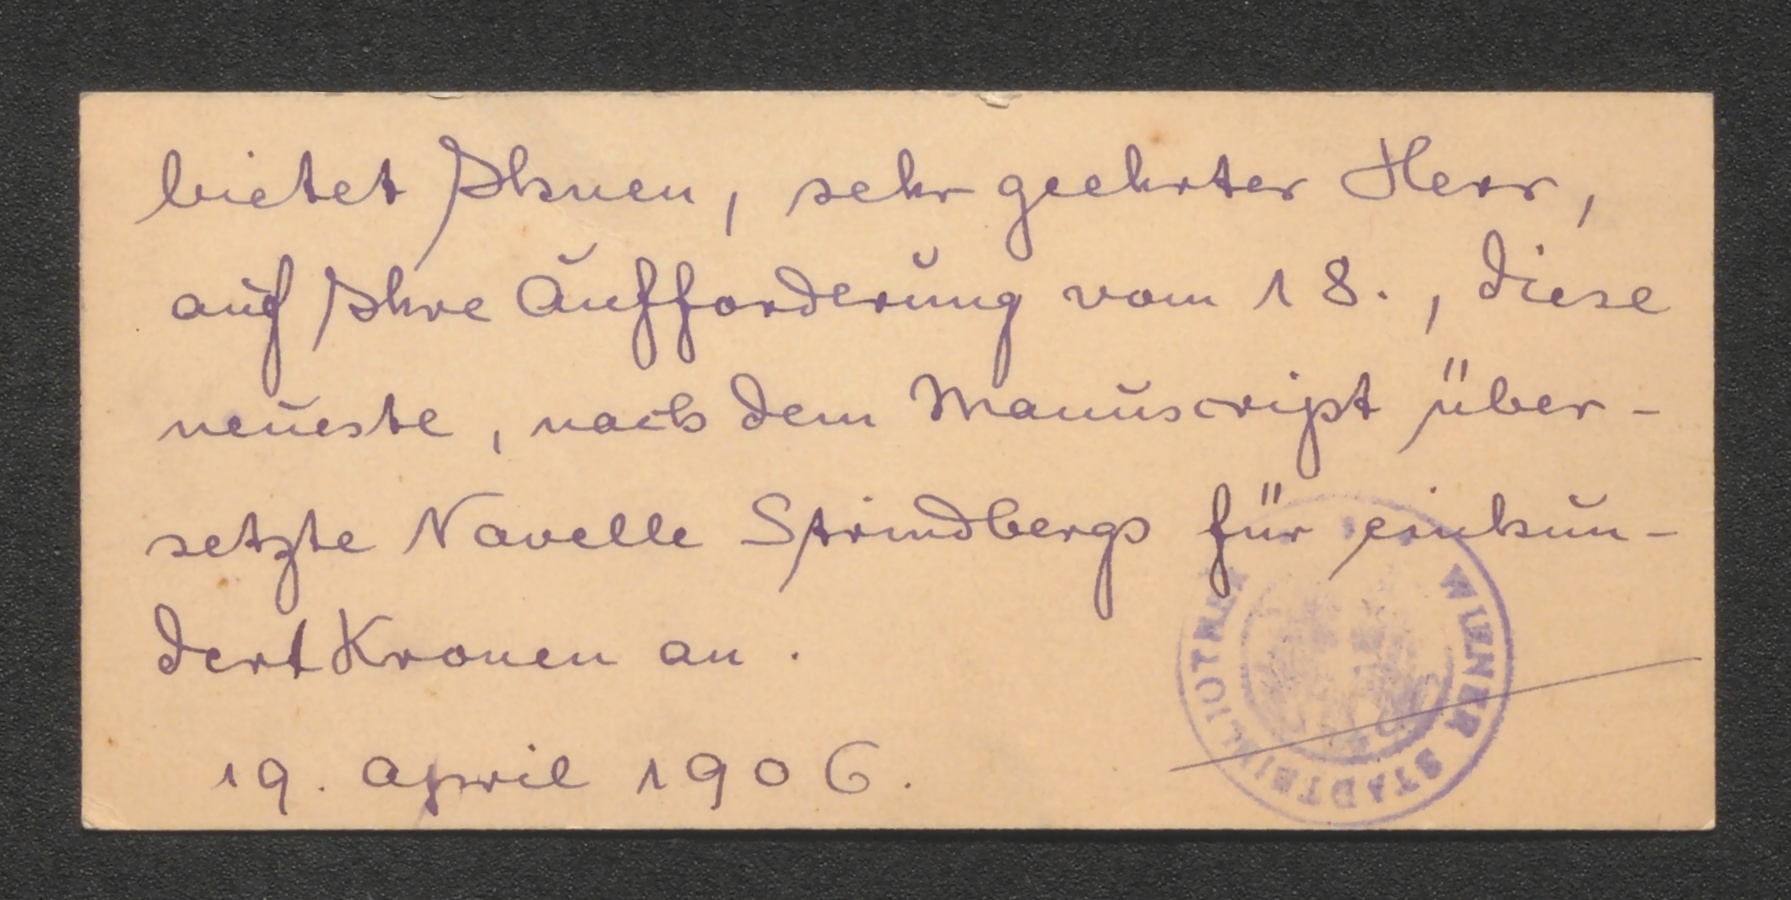 bietet Ihnen, sehr geehrter Herr,
auf Ihre Aufforderung vom 18., diese
neueste, nach dem Manuscript über-
setzte Novelle Strindbergs für einhun-
dert Kronen an.
19. April 1906.
WIENER STADTBIBLIOTHEK